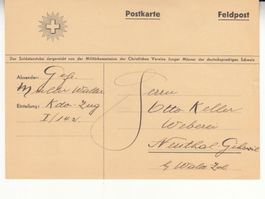 Postkarte Feldpost
Den Soldatenstube dargereicht von der Militärkommission der Christlichen Vereine Junger Männer der deutschsprachigen Schweiz
Absender: Gefr.
Müller Walter
Einteilung: Kdo-Zug
I/142
Herrn
Otto Keller
Weberei
Neuthal Gibswil
b/ Wald Zch.